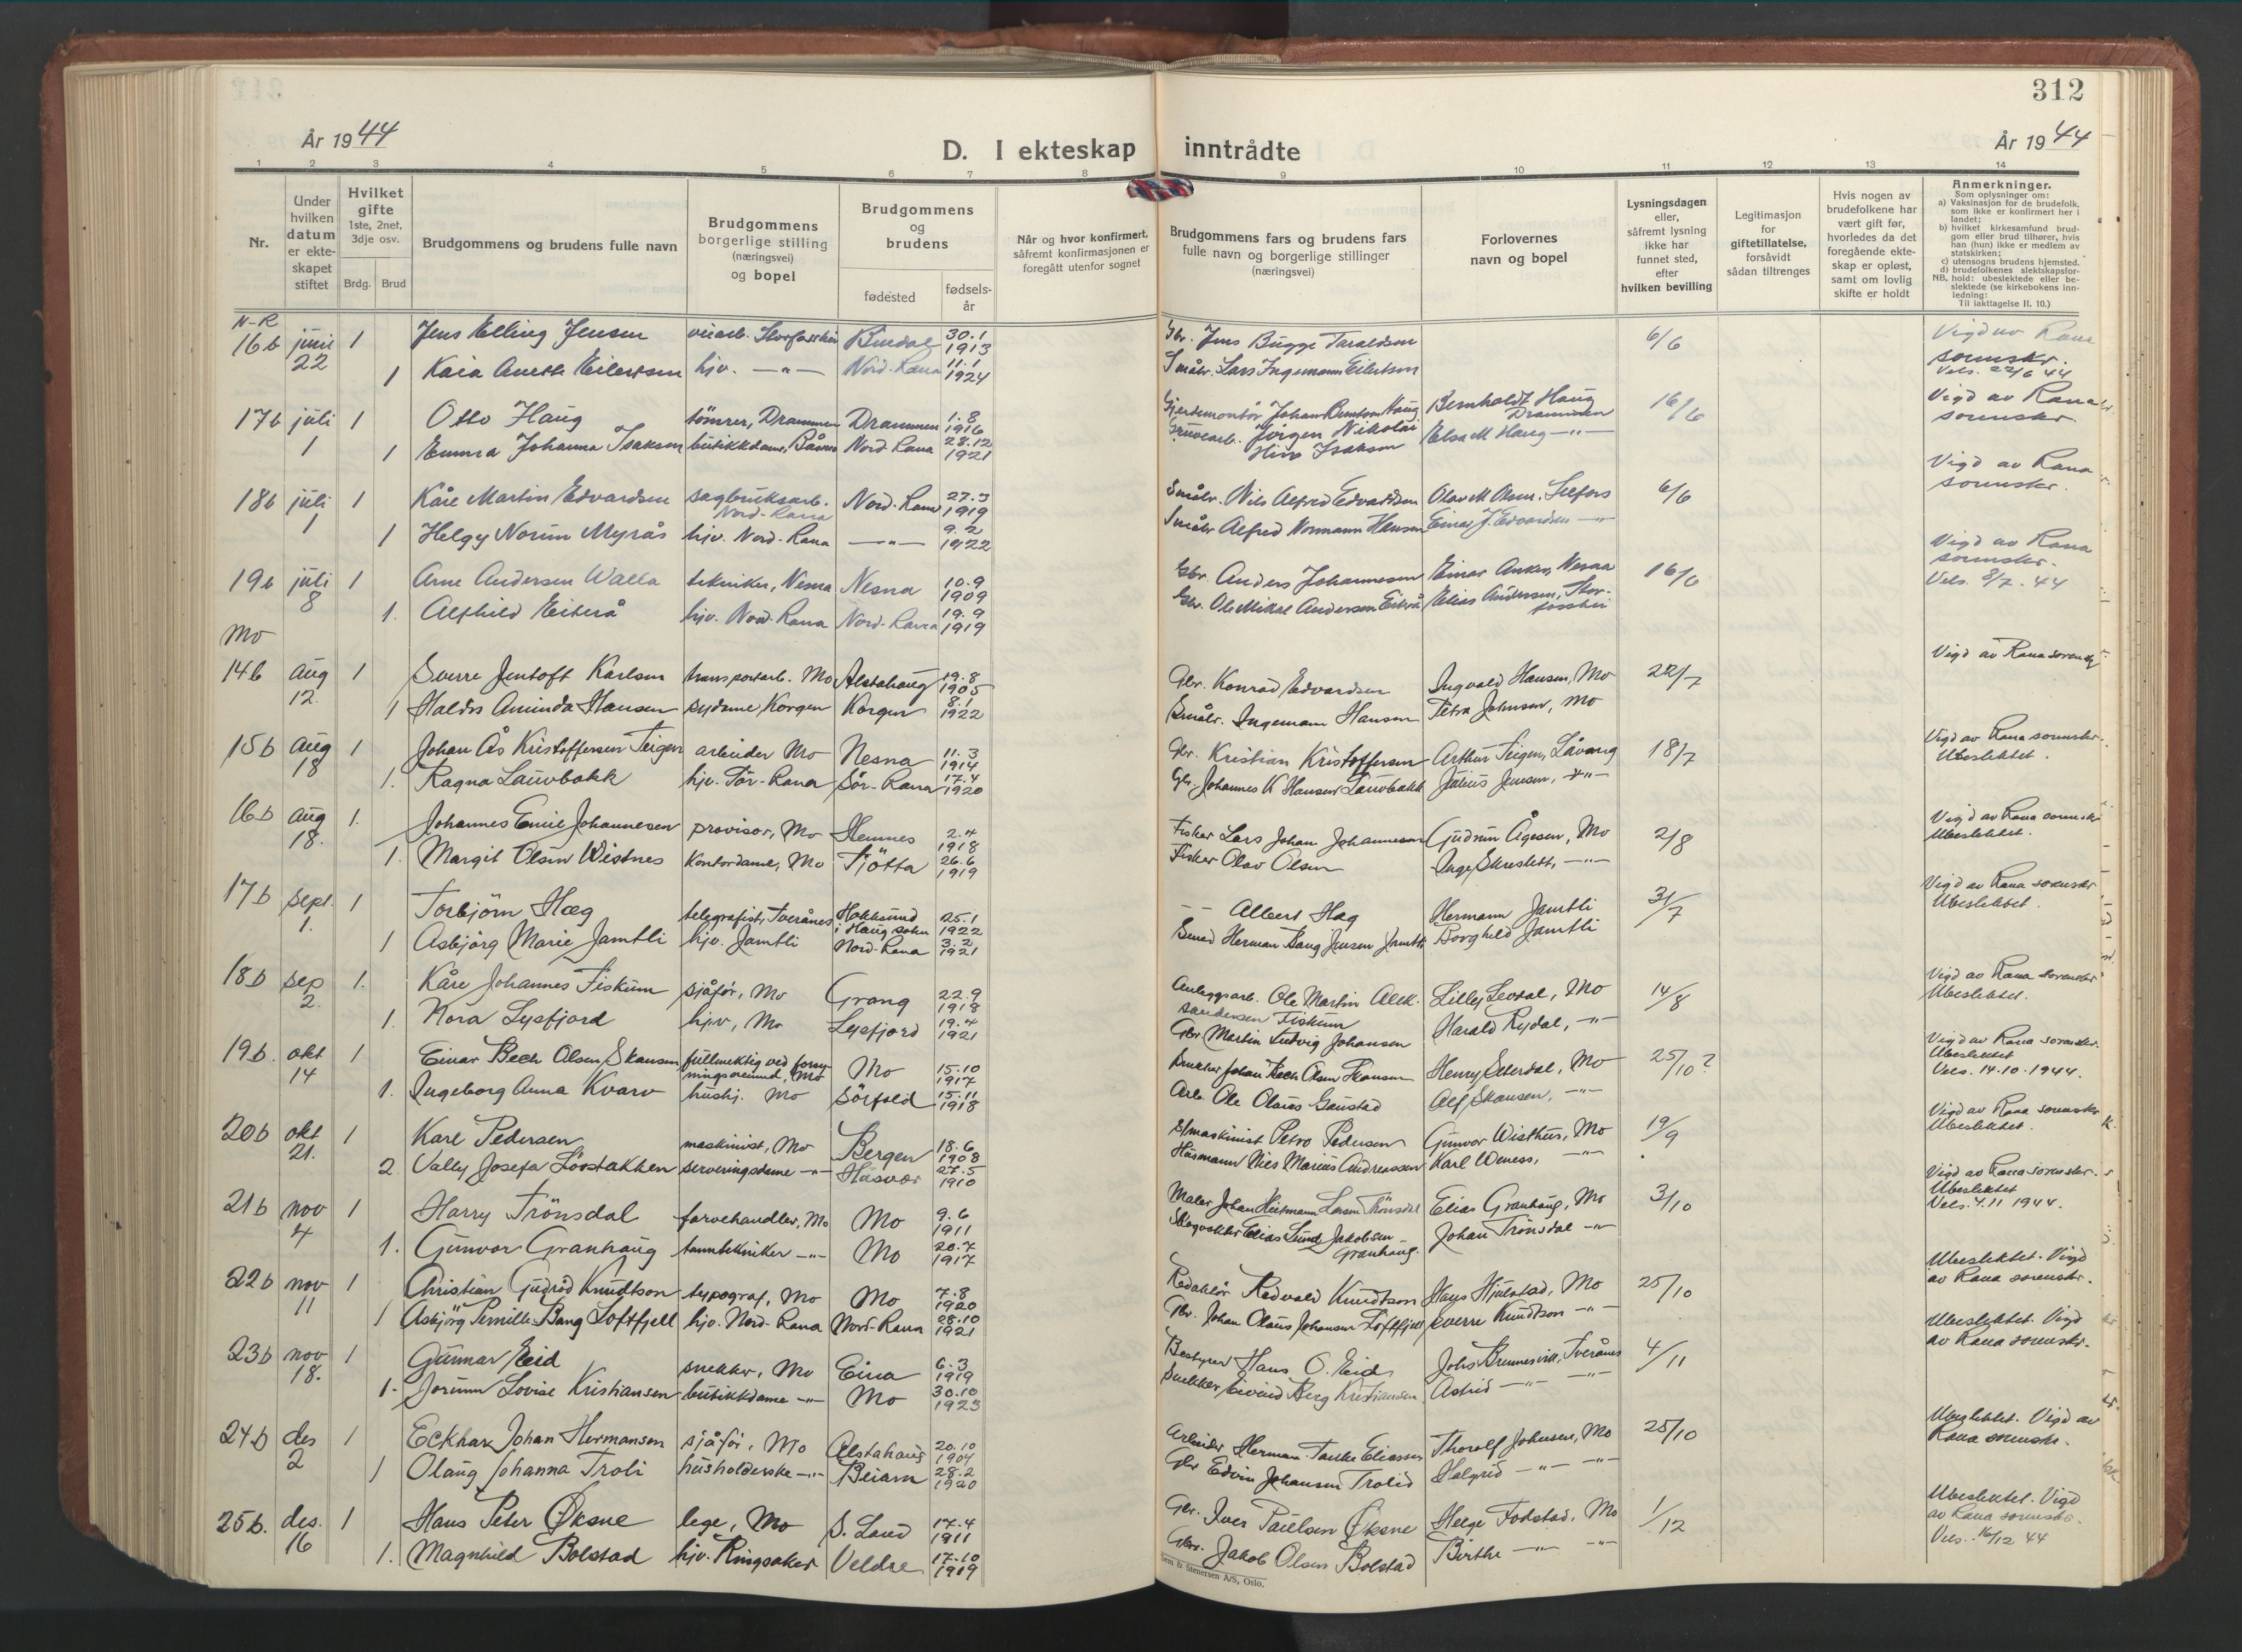 312
År 1944
D. I ekteskap inntrådte
År 1944
1 2 3 4 5 6 7 8 9 10 11 12 13 14
Nr.
Under hvilken datum er ekte-skapet stiftet
Hvilket gifte 1ste, 2net, 3dje osv.
Brdg. Brud
Brudgommens og brudens fulle navn
Brudgommens borgerlige stilling (næringsvei) og bopel
Brudgommens og brudens
fødested
fødsels-år
Når og hvor konfirmert, såfremt konfirmasjonen er foregått utenfor sognet
Brudgommens fars og brudens fars fulle navn og borgerlige stillinger (næringsvei)
Forlovernes navn og bopel
Lysningsdagen eller, såfremt lysning ikke har funnet sted, efter hvilken bevilling
Legitimasjon for giftetillatelse, forsåvidt sådan tiltrenges
Hvis nogen av brudefolkene har vært gift før, hvorledes da det foregående ekte-skap er opløst, samt om lovlig skifte er holdt
Anmerkninger.
Som oplysninger om:
a) Vaksinasjon for de brudefolk, som ikke er konfirmert her i landet;
b) hvilket kirkesamfund brud-gom eller brud tilhører, hvis han (hun) ikke er medlem av statskirken;
c) utensogns brudens hjemsted.
d) brudefolkenes slektskapsfor-hold: ubeslektede eller be-slektede (se kirkebokens inn-ledning:
NB. Til iakttagelse II. 10.)
N-R
16b juni 22 1 Jens Elling Jensen Bindal 30.1 1913 Gbr. Jens Bugge Taraldsen 6/6 Vigd av Rana sorenskr.
1 Kaia Anette Eilertsen hjv. —"— Nord-Rana 11.1 1924 Småbr. Lars Ingemann Eilertsen Vels. 22/6 44
17b juli 1 1 Otto Haug tømrer, Drammen Drammen 1.8 1916 Johan Haug Bernholdt Haug Drammen 16/6 Vigd av Rana sorenskr.
1 Emma Johanna Isaksen butikkdame, Båsmo Nord Rana 28.12 1921 Gruvearb. Jörgen Nikolai Isaksen Elsa M Haug —"—
18b juli 1 1 Kåre Martin Edvardsen sagbruksarb. Nord-Rana Nord-Rana 27.3 1919 Småbr. Nils Alfred Edvardsen Olav M Olsen, Selfors 6/6 Vigd av Rana sorenskr.
1 Helgy Norun Myrås hjv. Nord-Rana —"— 9.2 1922 Småbr Alfred Normann Hansen Einar J. Edvardsen —"—
19b juli 8 1 Arne Andersen Walla tekniker, Nesna Nesna 10.9 1909 Gbr. Anders Johannesen Einar Anker, Nesna 16/6 Vigd av Rana sorenskr.
1. Alfhild Eiterå hjv. Nord-Rana Nord-Rana 19.9 1919 Gbr. Ole Mikal Andersen Eiterå Elias Andersen, Storfosshei Vels. 8/7. 44
Mo
14b aug 12. 1 Sverre Jentoft Karlsen transportarb. Mo Alstahaug 19.8 1905 Gbr. Konrad Edvardsen Ingvald Hansen, Mo 22/7 Vigd av Rana sorenskr
1 Haldis Aminda Hansen sydame, Korgen Korgen 8.1 1922 Småbr. Ingemann Hansen Petra Johnsen, Mo
15b aug 18 1 Johan Ås Kristoffersen Teigen arbeider Mo Nesna 11.3 1914 Gbr. Kristian Kristoffersen Arthur Teigen, Låvong 18/7 Vigd av Rana sorenskr. Ubeslektet.
1. Ragna Lauvbakk hjv. Sör-Rana Sör-Rana 17.4 1920 Gbr. Johannes K Hansen Lauvbakk Julius Jensen, —"—
16b aug 18. 1. Johannes Emil Johannesen provisor, Mo Hemnes 2.4 1918 Fisker Lars Johan Johannesen Gudrun Ågesen, Mo 2/8 Vigd av Rana sorenskr Ubeslektet.
1. Margit Olsen Wistnes kontordame, Mo Tjötta 26.6 1919 Fisker Olav Olsen Inge Skreslett, —"—
17b sept. 1. 1 Torbjörn Hæg telegrafist, Tverånes Hokksund i Haug sokn 25.1 1922 — Albert Hæg Hermann Jamtli 31/7 Vigd av Rana sorenskr Ubeslektet.
1 Asbjörg Marie Jamtli hjv. Jamtli Nord-Rana 3.2 1921 Smed Herman Bang Jensen Jamtli Borghild Jamtli
18b sep 2. 1. Kåre Johannes Fiskum sjåför, Mo Grong 22.9 1918 Anleggsarb. Ole Martin Alek-sandersen Fiskum Lilly Levdal, Mo 14/8 Vigd av Rana sorenskr Ubeslektet.
1. Nora Lysfjord hjv, Mo Lysfjord 19.4 1921 Gbr Martin Ludvig Johansen Harald Rydal, —"—
19b. okt 14 1 Einar Bech Olsen Skansen fullmektig ved forsy-ningsnemnd, Mo Mo 15.10 1917 Johan Bech Olsen Skansen Henry Seterdal, Mo 25/10? Vigd av Rana sorenskr. Ubeslektet Vels. 14.10.1944.
1. Ingeborg Anna Kvarv hushj. Mo Sörfold 15.11 1918 Arb. Ole Olaus Gaustad Alf Skansen, —"—
20b okt 21. 1 Karl Pedersen maskinist, Mo Bergen 18.6 1908 S/maskinist Petro Pedersen Gunvor Wisthus, Mo 19/9 Vigd av Rana sorenskr Ubeslektet.
2. Vally Josefa Lövstakken serveringsdame —"— Husvær 27.5 1910 Husmann Nils Marius Andreassen Karl Weness, —"—
21b nov 4 1 Harry Trönsdal farvehandler, Mo Mo 9.6 1911 Maler Johan Heitmann Larsen Trönsdal Elias Granhaug, Mo 3/10 Vigd av Rana sorenskr. Ubeslektet Vels. 4.11 1944.
1. Gunvor Granhaug tanntekniker —"— Mo 20.7 1917 Skogvokter Elias Lund Jakobsen-Granhaug. Johan Trönsdal —"—
22b nov 11 1 Christian Gudröd Knudtson typograf, Mo Mo 7.8 1920 Redaktör Redvald Knudtson Hans Hjulstad, Mo 25/10 Ubeslektet. Vigd av Rana sorenskr.
1 Asbjörg Pernille Bang Loftfjell hjv. Nord-Rana Nord-Rana 28.10 1921 Gbr. Johan Olaus Johansen Loftfjell Sverre Knudtson —"—
23b nov 18. 1 Gunnar Eid snekker, Mo Eina 6.3 1919 Bestyrer Hans O. Eid Johs Brennesvik, Tverånes 4/11 Ubeslektet. Vigd av Rana sorenskr.
1. Jorunn Lovise Kristiansen butikkdame —"— Mo 30.10 1923 Snekker Eivind Berg Kristiansen Astrid —"— —"—
24b des 2 1 Eckhar Johan Hermansen sjåför, Mo Alstahaug 20.10 1904 Arbeider Herman Eliassen Thorolf Johnsen, Mo 25/10 Ubeslektet. Vigd av Rana sorenskr.
1 Olaug Johanna Troli husholderske —"— Beiarn 28.2 1920 Gbr Edvin Johansen Trolid Halgrid —"— —"—
25b. des. 16 1 Hans Peter Øksne lege, Mo S. Land 17.4 1911 Gbr. Iver Paulsen Øksne Helge Fodstad, Mo 1/12 Ubeslektet. Vigd av Rana sorenskr.
1. Magnhild Bolstad hjv. Ringsaker Veldre 17.10 1919 Gbr. Jakob Olsen Bolstad Birthe —"— —"— Vels. 16/12 44
Sem & Stenersen A/S, Oslo.